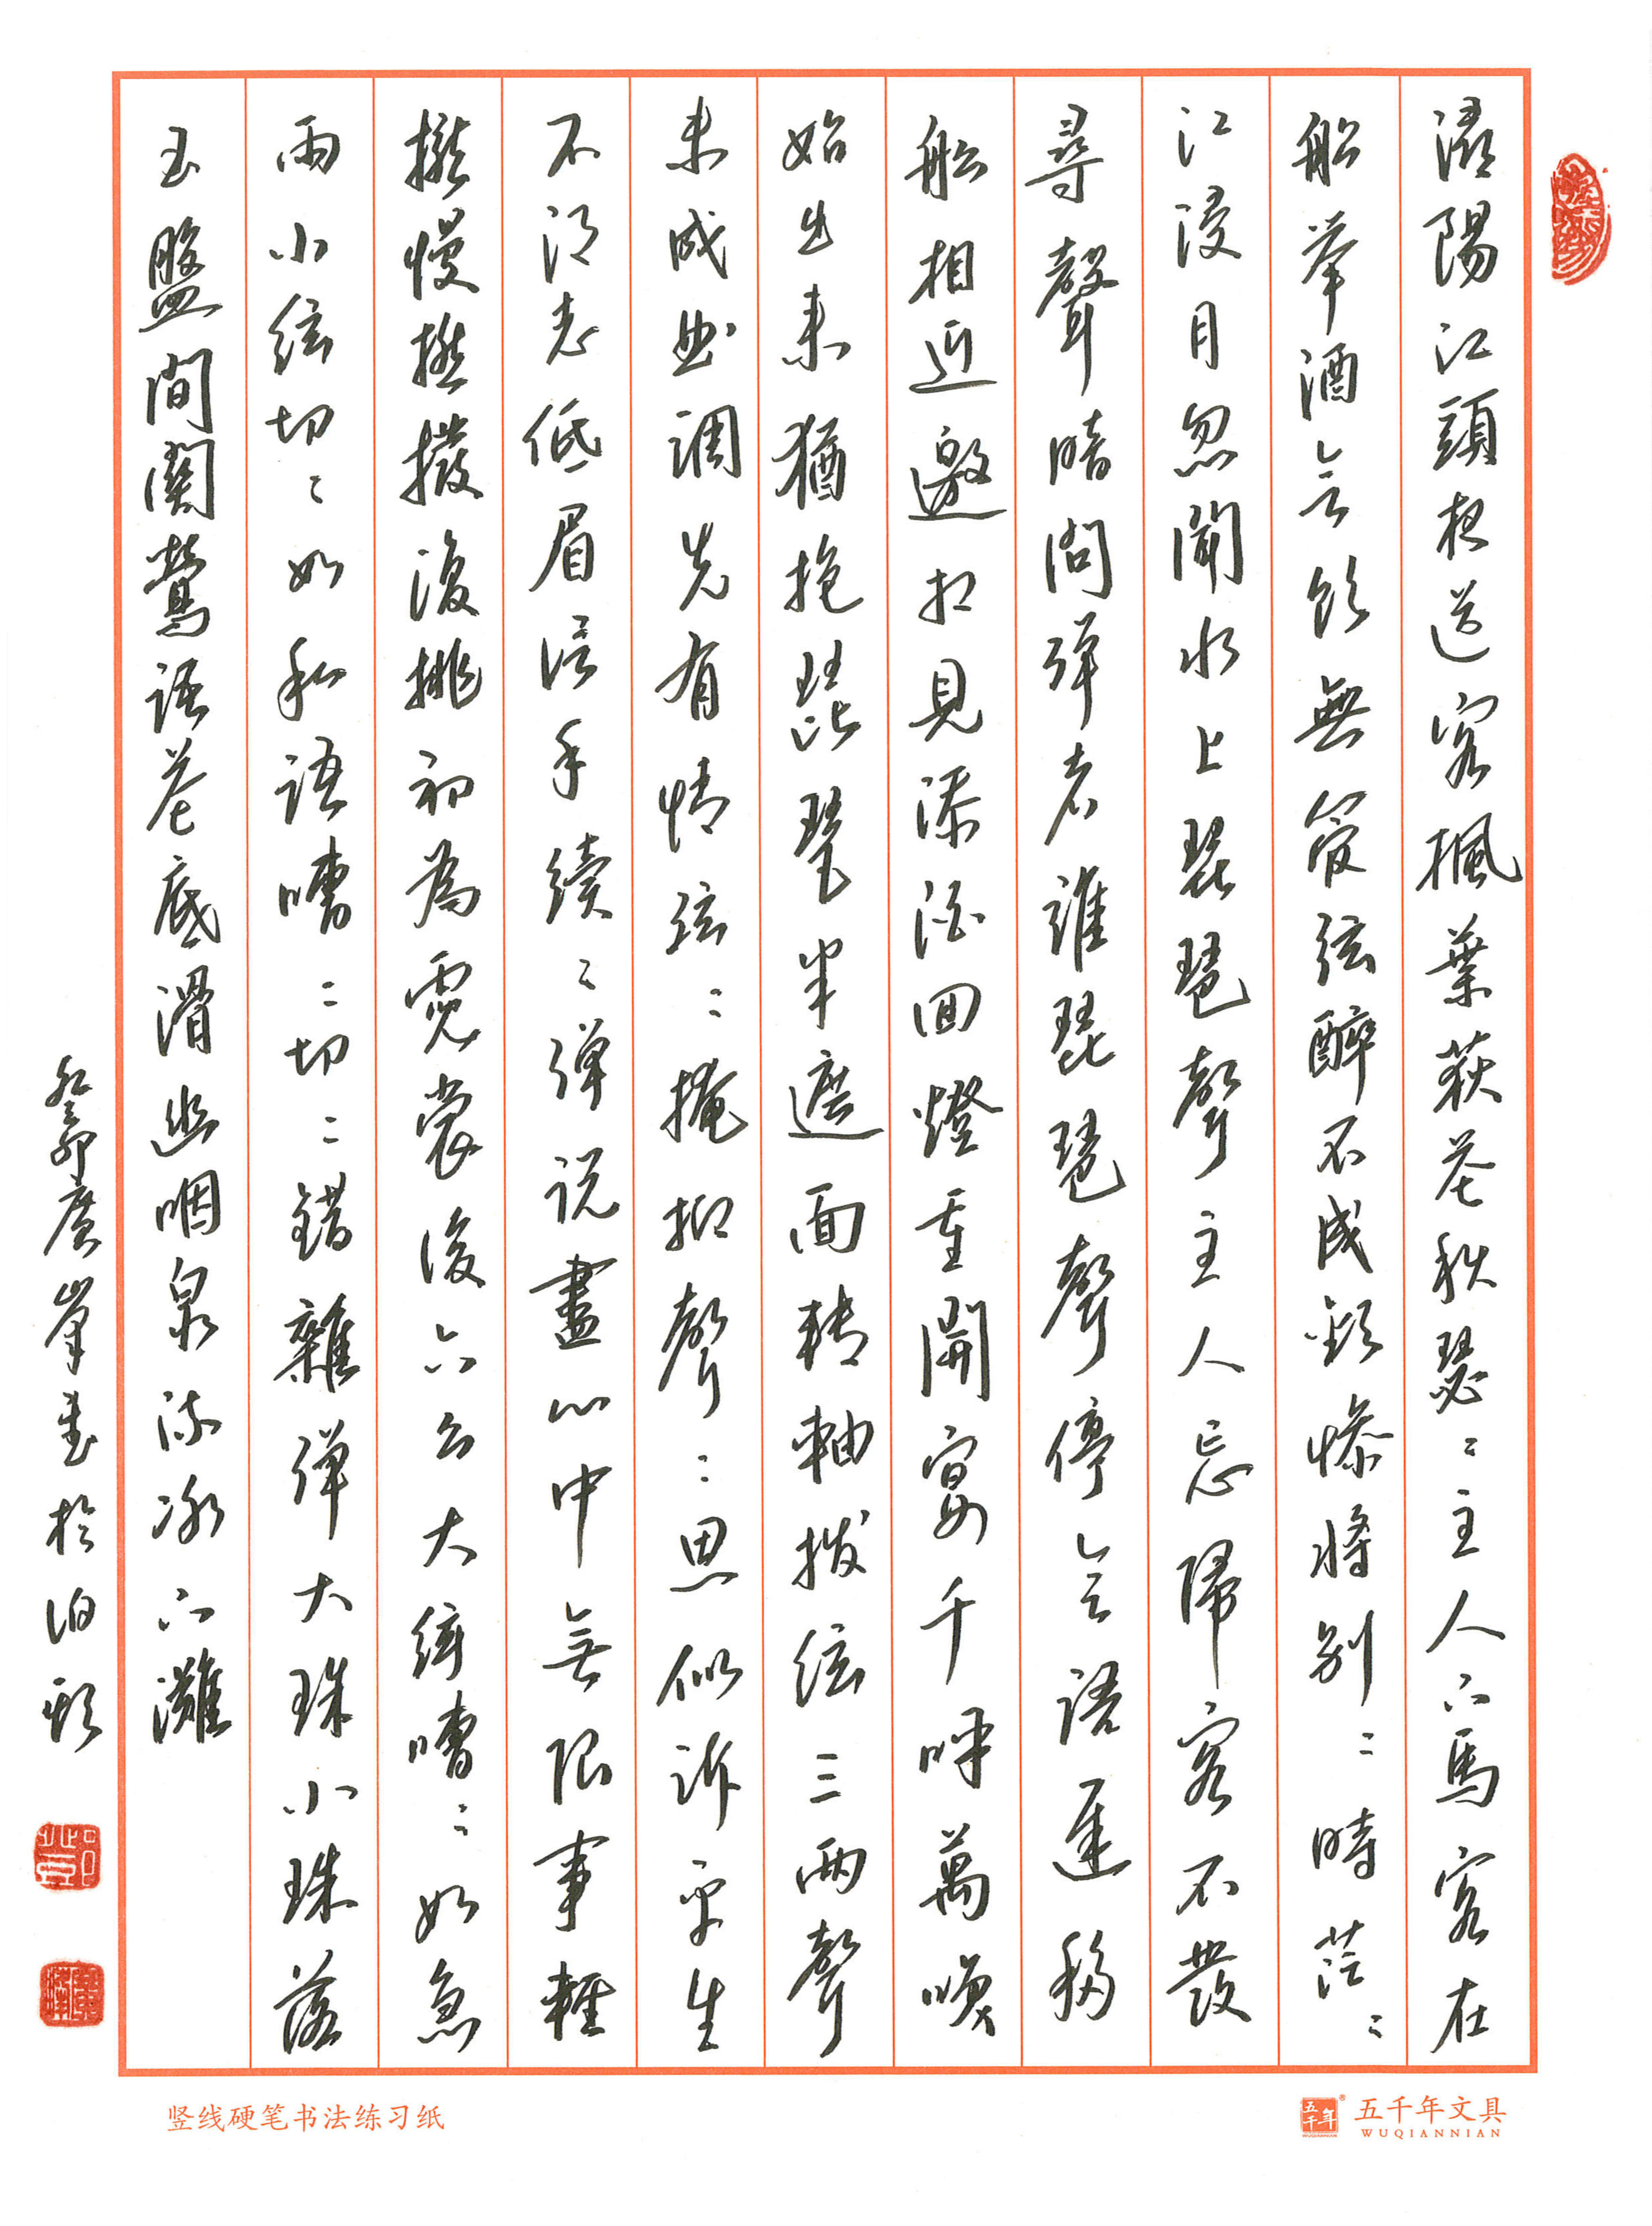 潯陽江頭夜送客楓葉荻花秋瑟〻主人下馬客在
船舉酒欲飲無管弦醉不成歡慘將别〻時茫〻
江浸月忽聞水上琵琶聲主人忘歸客不發
尋聲暗問彈者誰琵琶聲停欲語遲移
船相近邀相見添酒回燈重開宴千呼萬喚
始出來猶抱琵琶半遮面轉軸撥弦三兩聲
未成曲調先有情弦〻掩抑聲〻思似訴平生
不得志低眉信手續〻彈説盡心中无限事輕
攏慢撚撥復挑初為霓裳後六幺大絃嘈〻如急
雨小絃切〻如私語嘈〻切〻錯雜彈大珠小珠落
玉盤間關鶯語花底滑幽咽泉流冰下灘
癸卯廣峯書於泊頭
竖线硬笔书法练习纸
五千年®
五千年文具
WUQIANNIAN